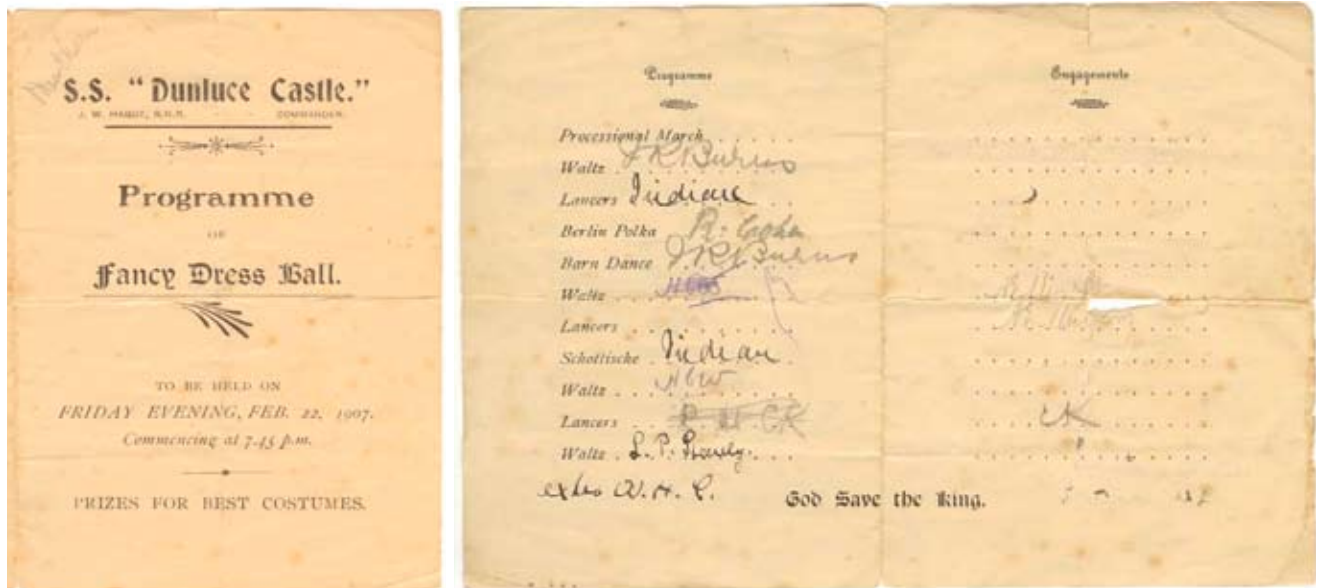 S.S. “Dunluce Castle.”
COMMANDER.
Programme
OF
Fancy Dress Ball.
TO BE HELD ON
FRIDAY EVENING, FEB. 22, 1907.
Commencing at 7.45 p.m.
PRIZES FOR BEST COSTUMES.
Programme
Processional March
Waltz
Lancers Indian
Berlin Polka R. Cohen
Barn Dance
Waltz
Lancers
Schottische Indian
Waltz HCW
Lancers
Waltz L.P.
God Save the King.
Engagements
CK